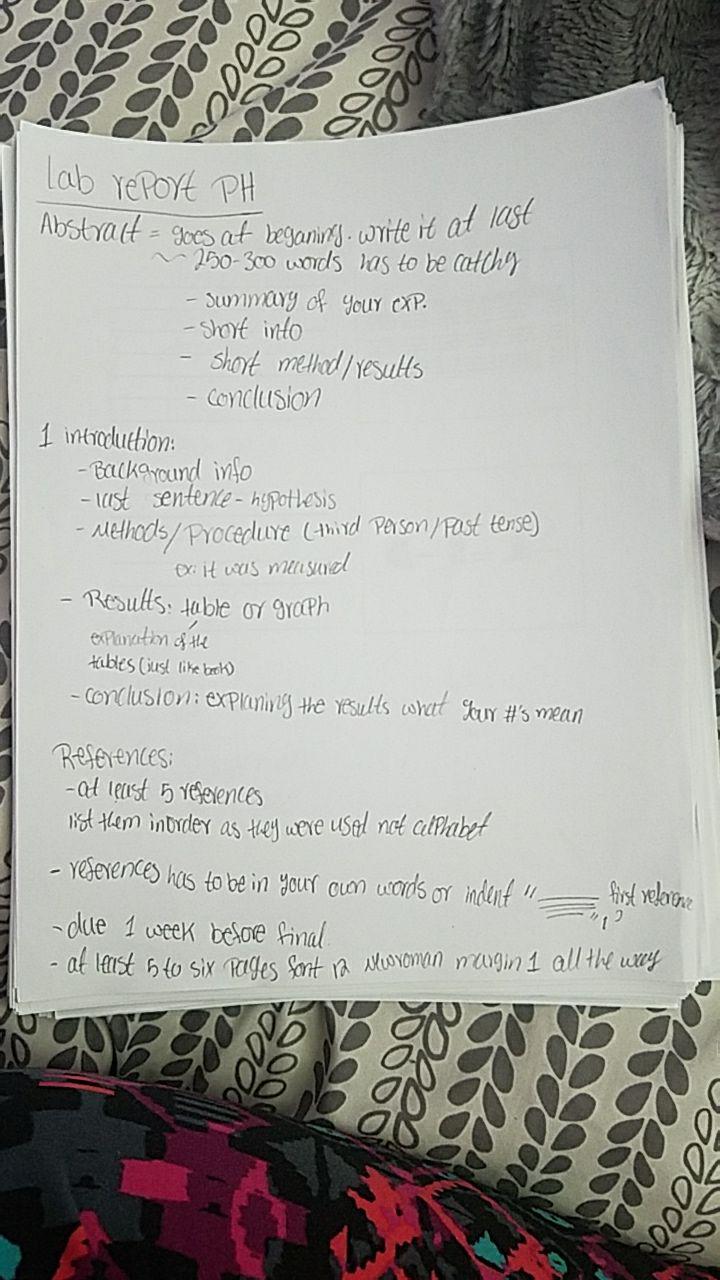 lab report PH
Abstract = goes at beganing. write it at last
~~ 250-300 words has to be catchy
- summary of your exp.
- short into
- short method/results
- conclusion
1 introduction:
- Background info
- last sentence - hypothesis
- Methods/Procedure (third Person/Past tense)
ex: it was measured
- Results: table or graph
explanation of the
tables (just like book)
- conclusion: explaning the results what your #'s mean
References:
- at least 5 references
list them inorder as they were used not alphabet
- references has to be in your own words or indent " first reference
" 1
- due 1 week before final
- at least 5 to six Pages font 12 roman margin 1 all the way